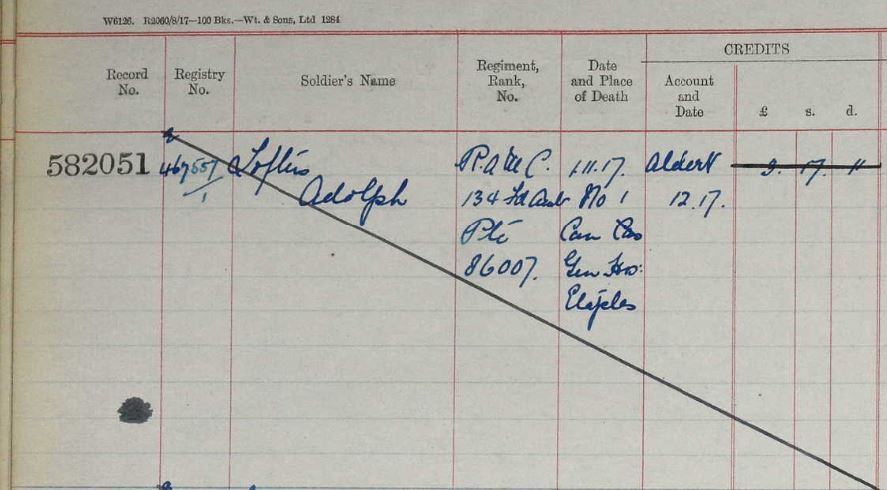 W6126. R2060/8/17—100 Bks.—Wt. & Sons, Ltd 1284
CREDITS
Record No.
Registry No.
Soldier's Name
Regiment, Rank, No.
Date and Place of Death
Account and Date
£ s. d.
582051 467557/1 Loftus R.A.M.C. 1.11.17. Alders 17 11
Adolph 134 Fd Amb No 1 12.17.
Pte Can
86007. Gen Hos:
Etaples